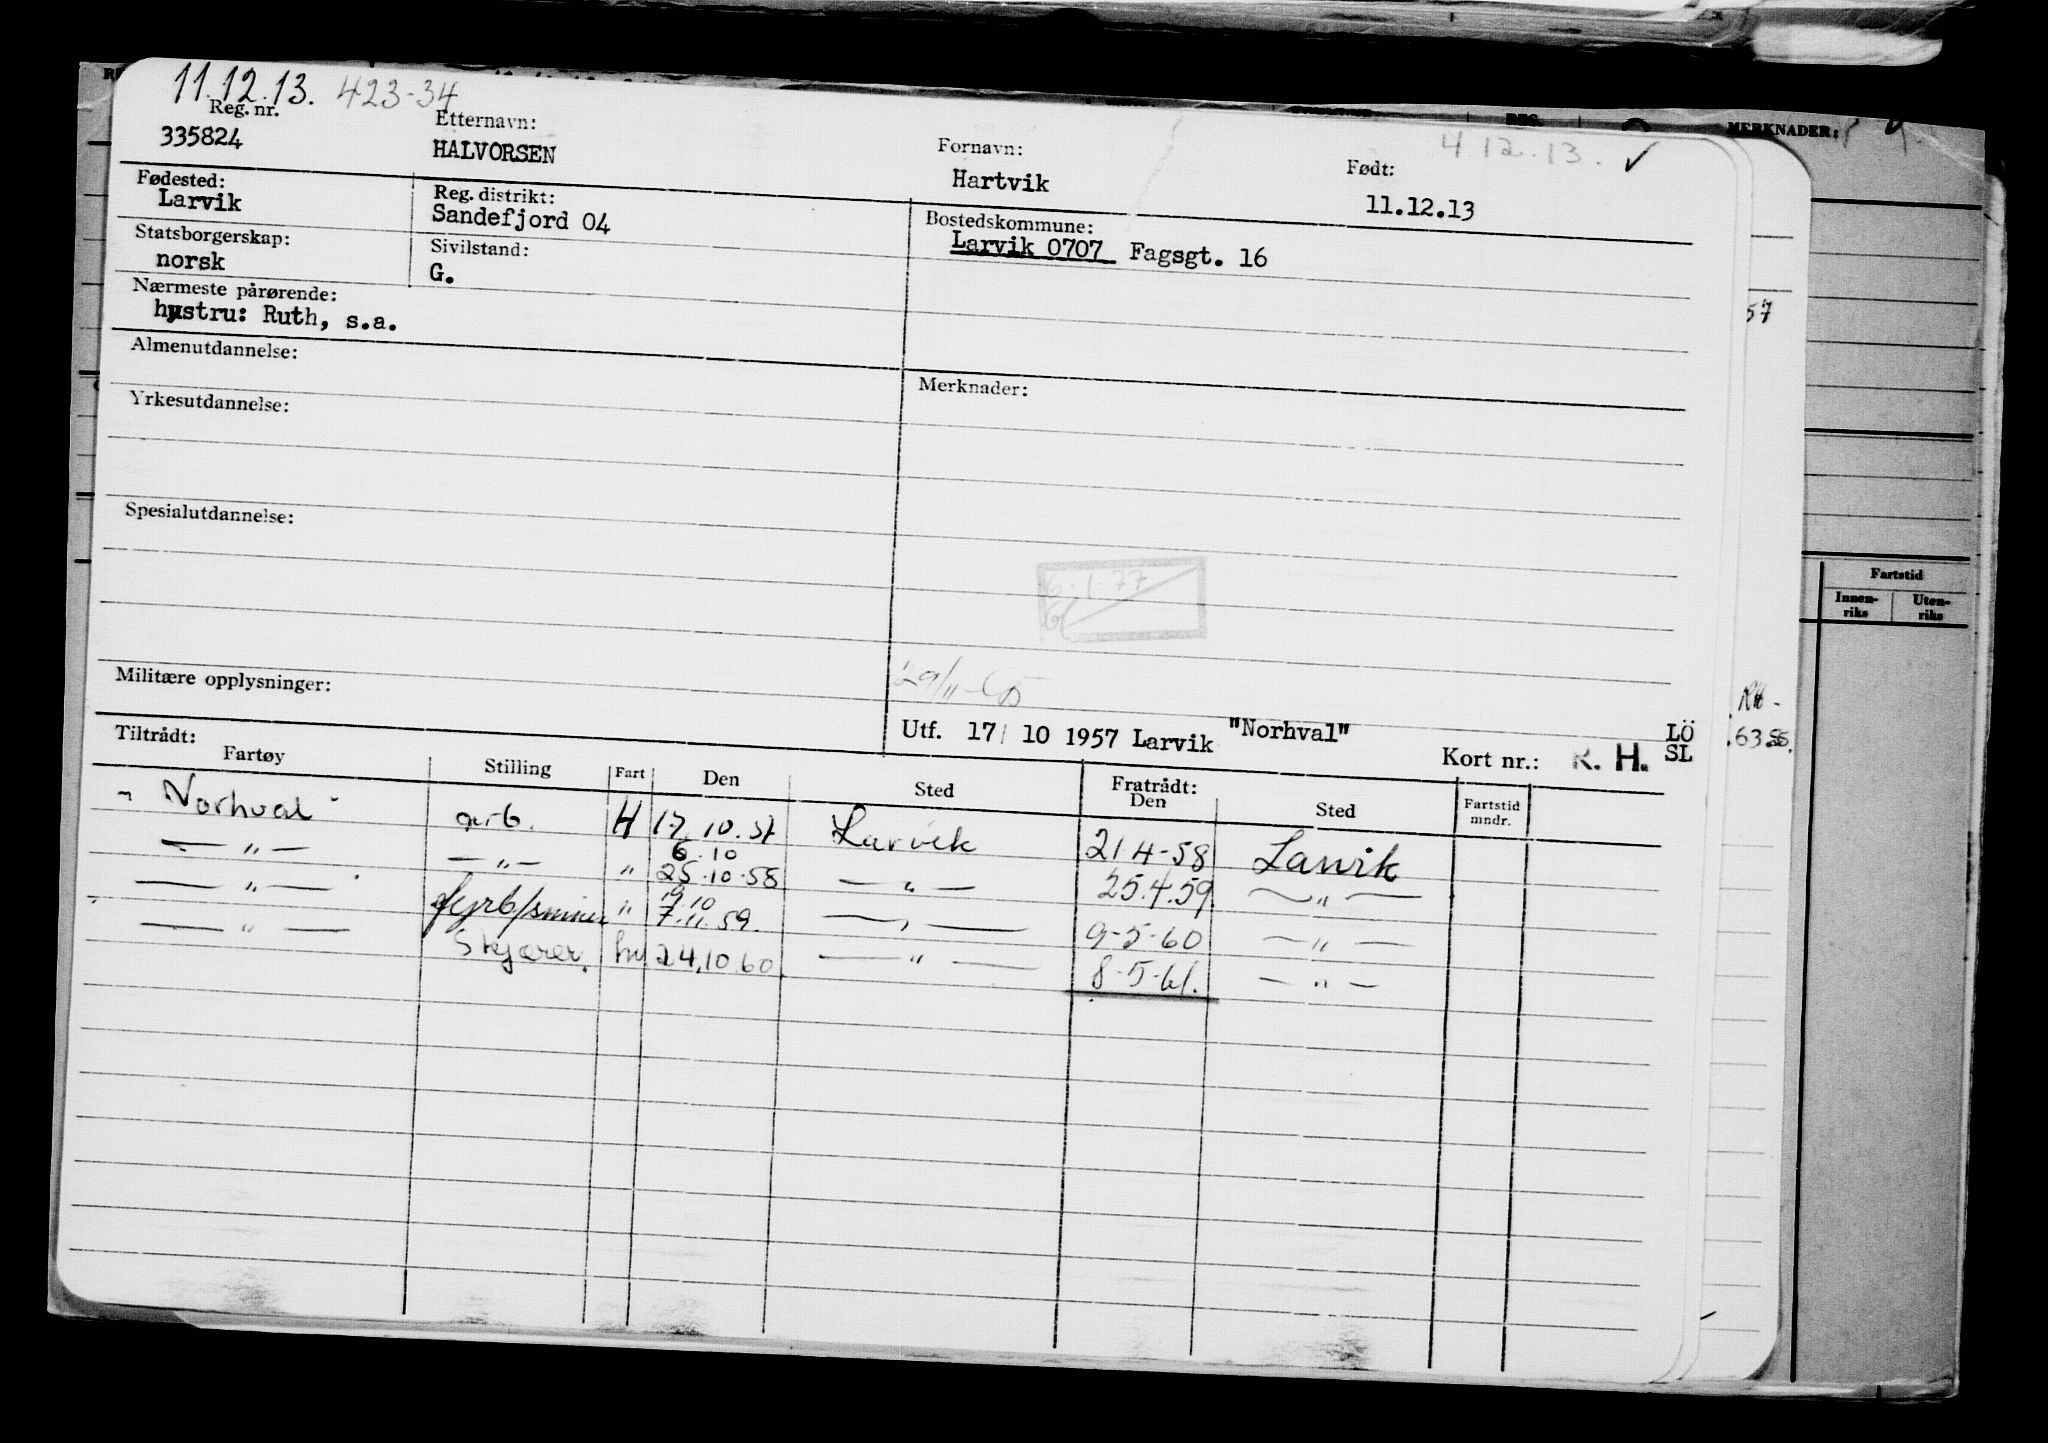 11.12.13. 423-34
Reg. nr. Etternavn: Fornavn: Født: 4.12.13. ✓
335824 HALVORSEN Hartvik 11.12.13
Fødested: Reg. distrikt: Bostedskommune:
Larvik Sandefjord 04 Larvik 0707 Fagsgt. 16
Statsborgerskap: Sivilstand:
norsk G.
Nærmeste pårørende:
hustru: Ruth, s.a.
Almenutdannelse:
Merknader:
Yrkesutdannelse:
Spesialutdannelse:
6-1-77
Militære opplysninger:
29/11-65
Utf. 17/ 10 1957 Larvik "Norhval"
Kort nr.: R. H. LÖ
SL
Tiltrådt: Fratrådt:
Fartøy Stilling Fart Den Sted Den Sted Fartstid mndr.
"Norhval" arb. H 17.10.57 Larvik 21 4-58 Larvik
— " — — " — " 6.10 25.10.58 — " — 25.4.59. — " —
— " — " 19.10 7.11.59. — " — 9-5-60 — " —
— " — Skjærer. hv 24.10.60. — " — 8-5-61. — " —
MERKNADER:
57
RH-
.63 55.
Fartstid
Innen-
riks
Uten-
riks